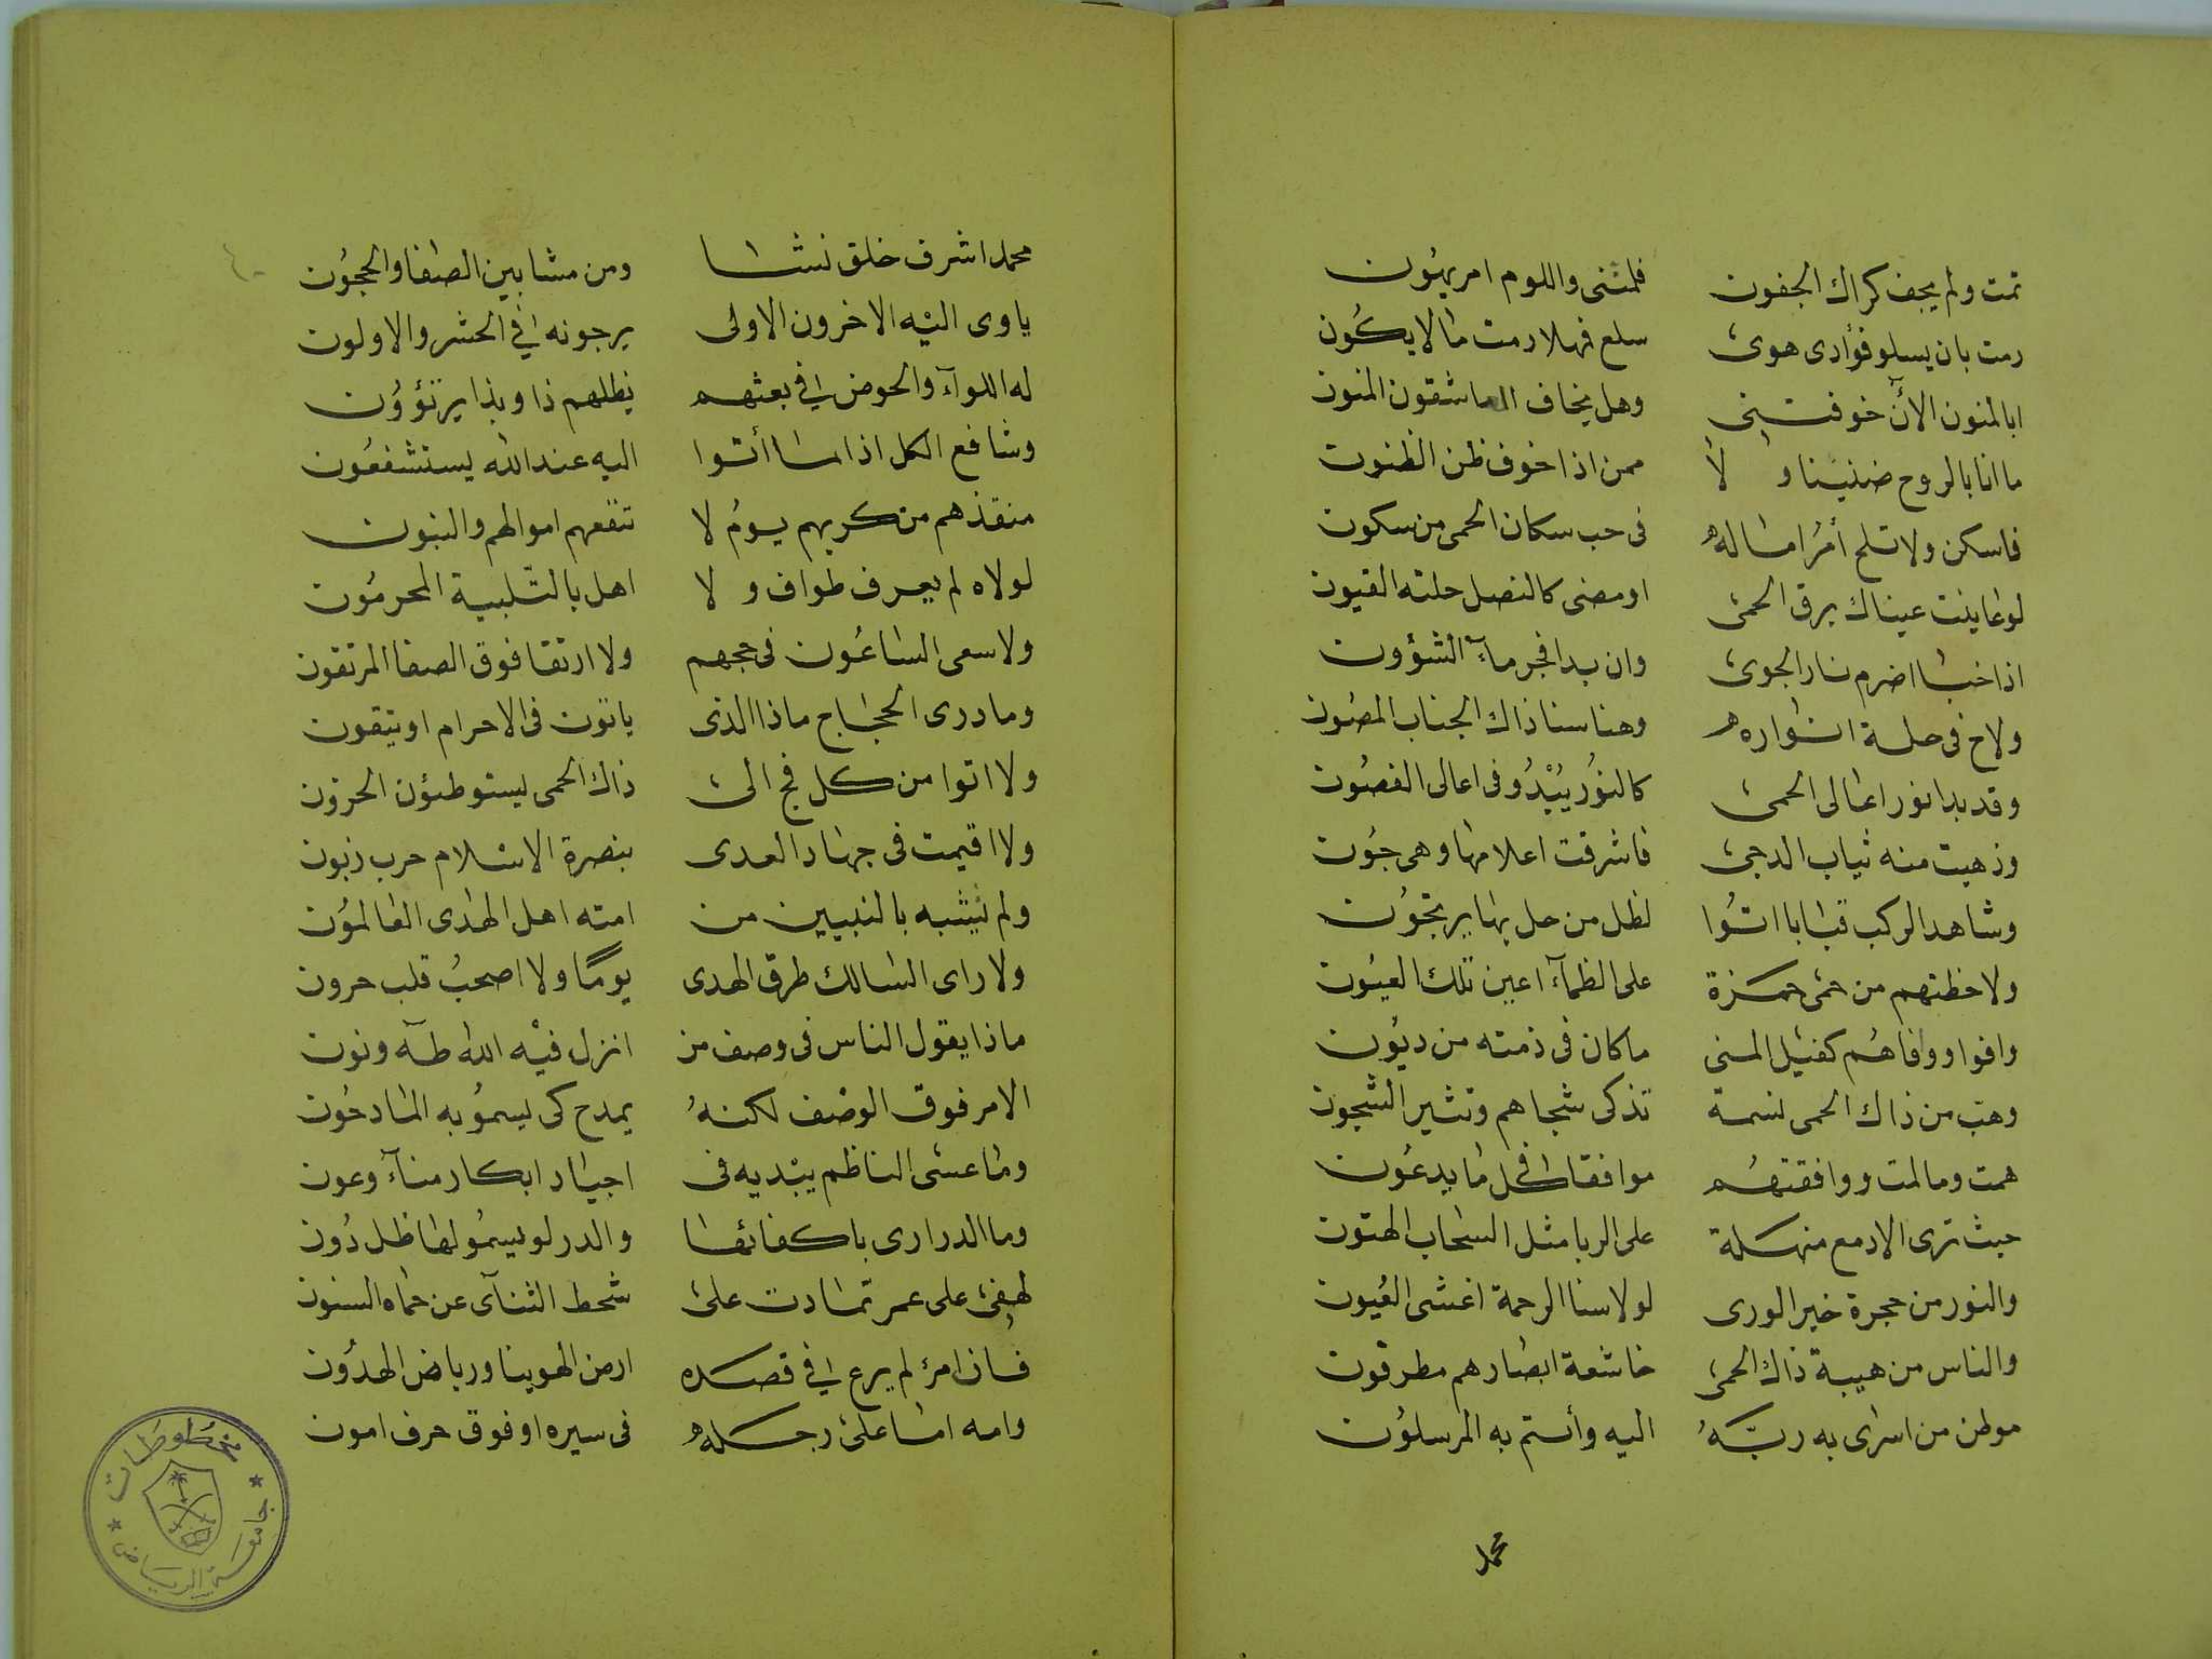 نمت ولم يجف كراك الجفون فلمتنى واللوم امر يهون
رمت بان يسلو فؤادى هوى سلع فهلا رمت ما لا يكون
ابالمنون الآن خوفتنى وهل يخاف العاشقون المنون
ما انا بالروح ضنينا ولا ممن اذا خوف ظن الظنون
فاسكن ولا تلح أمرا ما له فى حب سكان الحمى من سكون
لو عاينت عيناك برق الحمى اومض كالنصل جلته القيون
اذا خبا اضرم نار الجوى وان بدا فجر مآء الشؤون
ولاح فى حلة انواره وهنا سنا ذاك الجناب المصون
وقد بدا نور اعالى الحمى كالنور يبدو فى اعالى الغصون
وذهبت منه ثياب الدجى فاشرقت اعلامها وهى جون
وشاهد الركب قبابا اتوا لظل من حل بها يرتجون
ولاحظتهم من حمى حمزة على الظمآء اعين تلك العيون
وافوا ووافاهم كفيل المنى ما كان فى ذمته من ديون
وهب من ذاك الحمى نسمة تذكى شجاهم وتثير الشجون
همت وما لمت ووافقتهم موافقا فى كل ما يدعون
حيث ترى الادمع منهلة على الربا مثل السحاب الهتون
والنور من حجرة خير الورى لولا سنا الرحمة اغشى العيون
والناس من هيبة ذاك الحمى خاشعة ابصارهم مطرقون
موطن من اسرى به ربه اليه وأتم به المرسلون
محمد
محمد اشرف خلق نشا ومن مشا بين الصفا والحجون
ياوى اليه الاخرون الاولى يرجونه فى الحشر والاولون
له اللوآء والحوض فى بعثهم يظلهم ذا وبذا يرتوون
وشافع الكل اذا ما أتوا اليه عند الله يستشفعون
منقذهم من كربهم يوم لا تنفعهم اموالهم والبنون
لولاه لم يعرف طواف ولا اهل بالتلبية المحرمون
ولا سعى الساعون فى حجهم ولا ارتقا فوق الصفا المرتقون
وما درى الحجاج ماذا الذى ياتون فى الاحرام او يتقون
ولا اتوا من كل فج الى ذاك الحمى يستوطئون الحزون
ولا اقيمت فى جهاد العدى بنصرة الاسلام حرب زبون
ولم يشبه بالنبيين من امته اهل الهدى العالمون
ولا راى السالك طرق الهدى يوما ولا اصحب قلب حرون
ماذا يقول الناس فى وصف من انزل فيه الله طه ونون
الامر فوق الوصف لكنه يمدح كى يسمو به المادحون
وما عسى الناظم يبديه فى اجياد ابكار مناء وعون
وما الدرارى باكفائها والدر لو يسمو لها ظل دون
لهفى على عمر تمادت على شحط التنآى عن حماه السنون
فاز امرئ لم يرع فى قصده ارض الهوينا ورياض الهدون
وامه اما على رجله فى سيره او فوق حرف امون
٤٠
مخطوطات
جامعة الرياض